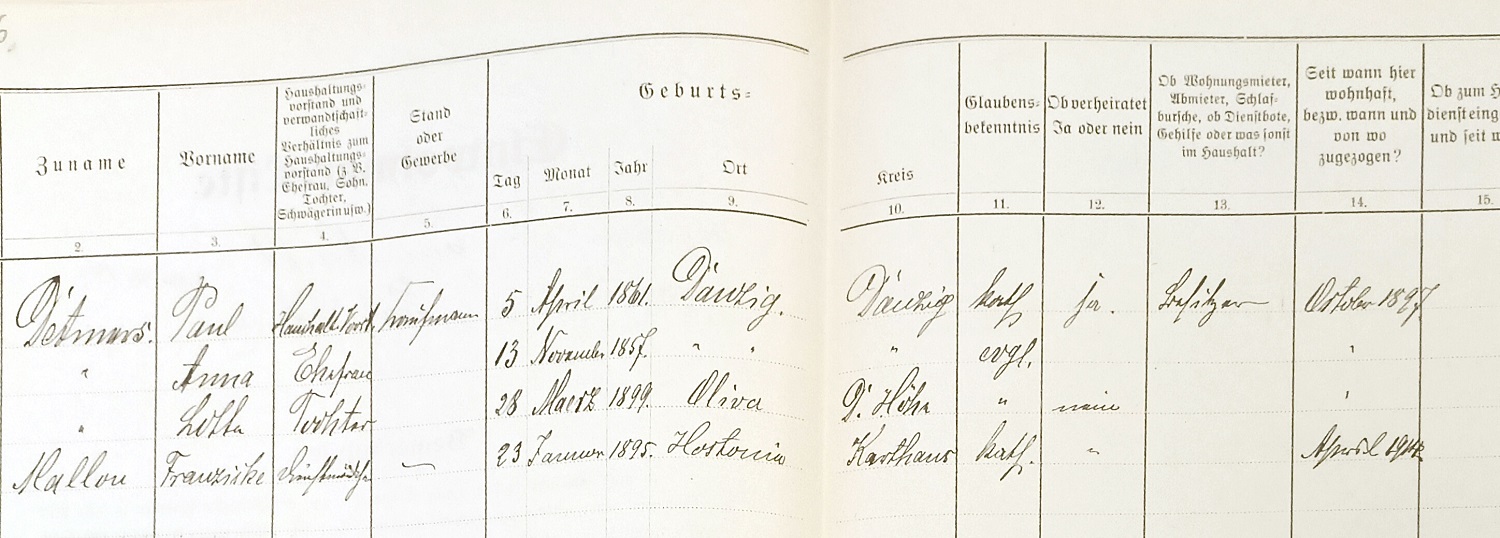 Geburts=
Zuname
Vorname
Haushaltungs-
vorstand und
verwandtschaft-
liches
Verhältnis zum
Haushaltungs-
vorstand (z. B.
Ehefrau, Sohn,
Tochter,
Schwägerin usw.)
Stand
oder
Gewerbe
Tag
Monat
Jahr
Ort
Kreis
Glaubens-
bekenntnis
Ob verheiratet
Ja oder nein
Ob Wohnungsmieter,
Abmieter, Schlaf-
bursche, ob Dienstbote,
Gehilfe oder was sonst
im Haushalt?
Seit wann hier
wohnhaft,
bezw. wann und
von wo
zugezogen?
Ob zum H
dienst eing
und seit w
2. 3. 4. 5. 6. 7. 8. 9. 10. 11. 12. 13. 14. 15.
Detmers. Paul Haushalt. Vorst. Kaufmann 5 April 1861. Danzig. Danzig kath ja. Besitzer October 1897
" Anna Ehefrau 13 November 1857. " " " evgl. "
" Lotte Tochter 28 Maerz 1899. Oliva D. Höhe " nein "
Mallon Franziska Dienstmädchen — 23 Januar 1895. Karthaus kath. " April